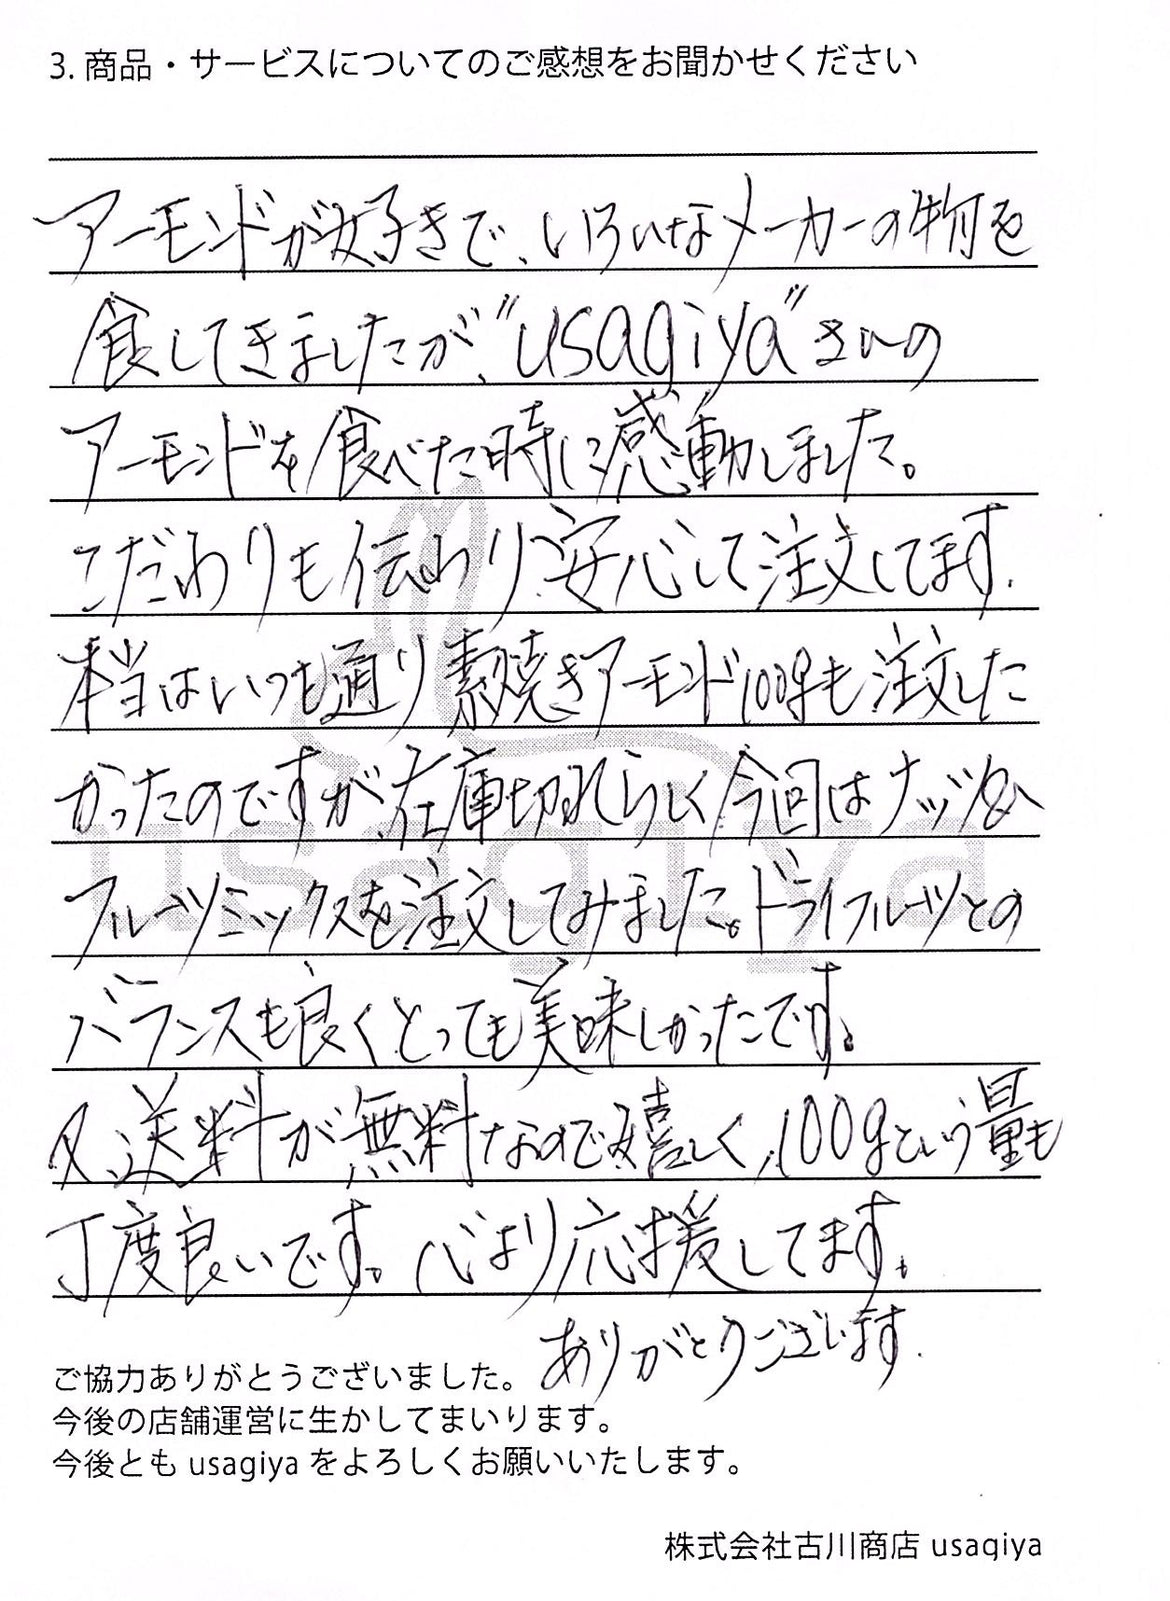 3. 商品・サービスについてのご感想をお聞かせください
アーモンドが好きで、いろいろなメーカーの物を
食してきましたが、"usagiya"さんの
アーモンドを食べた時に感動しました。
こだわりも伝わり、安心して注文してます.
本当はいつも通り素焼きアーモンド100gも注文した
かったのですが、在庫切れらしく今回はナッツ&
フルーツミックスを注文してみました。ドライフルーツとの
バランスも良くとっても美味しかったです。
又、送料が無料なので嬉しく、100gという量も
丁度良いです。心より応援してます。
ありがとうございます.
ご協力ありがとうございました。
今後の店舗運営に生かしてまいります。
今後とも usagiya をよろしくお願いいたします。
株式会社古川商店 usagiya
usagiya